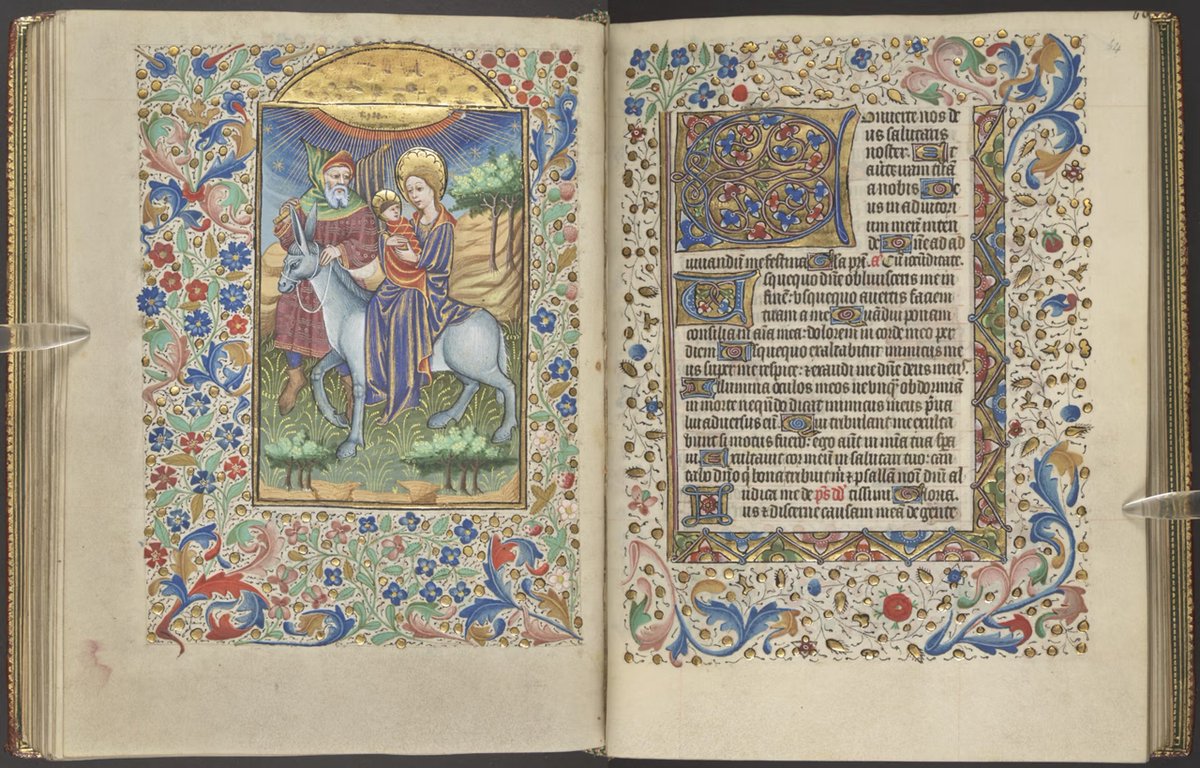 64
Conuerte nos de
us salutaris
noster. Et
auerte iram tuā
a nobis De
us in adiutori
um meū inten
de Dn̄e ad ad
iuuandū me festina Gla pr̄i. a Cū iocūditate.
Usquequo dn̄e obliuisceris me in
finē: vsquequo auertis faciem
tuam a me Quādiu ponam
consilia in aīa mea: dolorem in corde meo per
diem Usquequo exaltabitur inimicus me
us super me respice: et exaudi me dn̄e deus meus
Illumina oculos meos ne vnq̄ obdormiā
in morte neqn̄do dicat inimicus meus p̄ua
lui aduersus eū Qui tribulant me exulta
bunt si motus fuero: ego aūt in mīa tua spa
ui Exultauit cor meū in salutari tuo: can
tabo dn̄o q̄ bona tribuit m̄ et psallā noī dn̄i al
Iudica me de ps dd tissimi Gloria.
us et discerne causam meā de gente